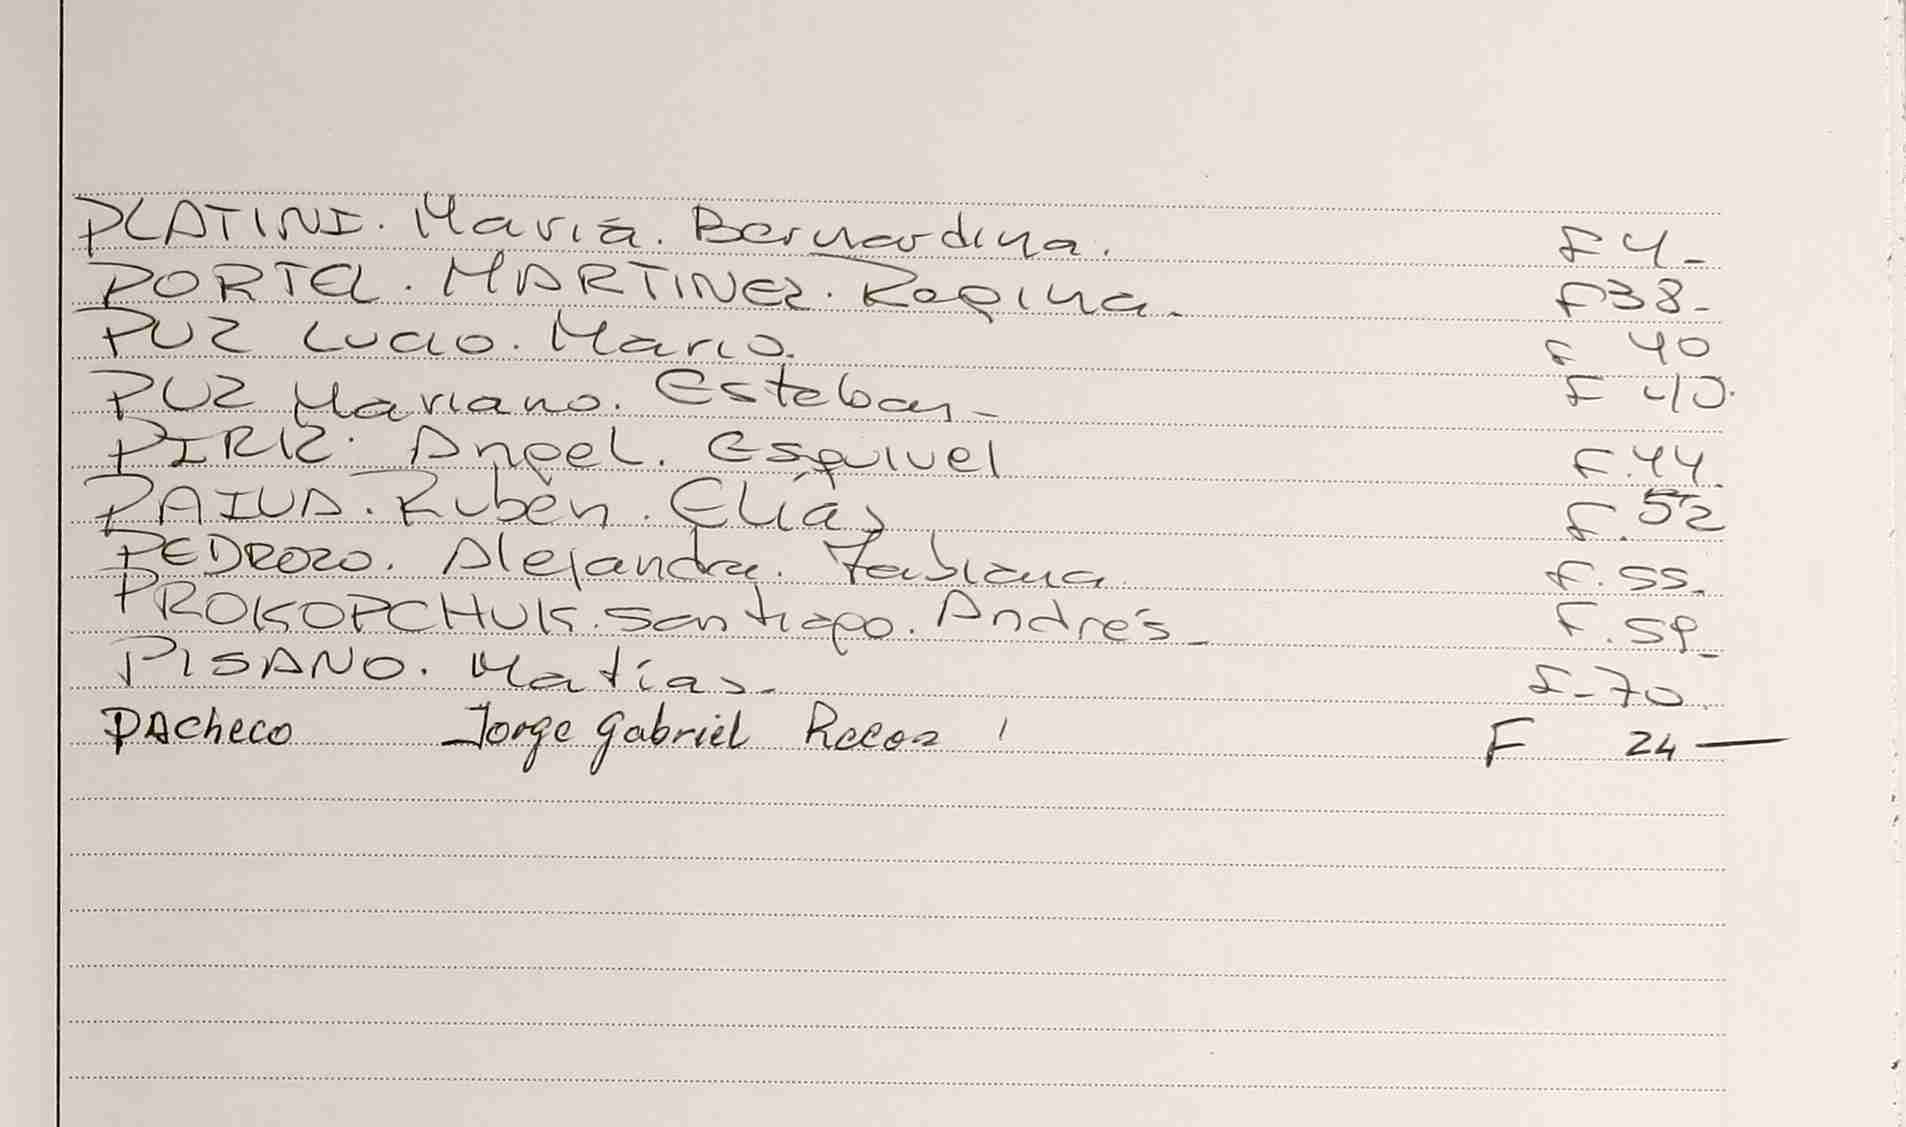 PLATINI. María. Bernardina. F 4-
PORTEL. MARTINEZ. Regina. F 38-
PUZ Lucio. Mario. F 40
PUZ Mariano. Esteban- F 40.
PIRIZ. Angel. Esquivel F. 44.
PAIVA. Rubén. Elías F. 52
PEDROZO. Alejandra. Fabiana F. 55-
PROKOPCHUK. Santiago. Andrés- F. 59-
PISANO. Matías- F-70.
PAcheco Jorge gabriel F 24 —